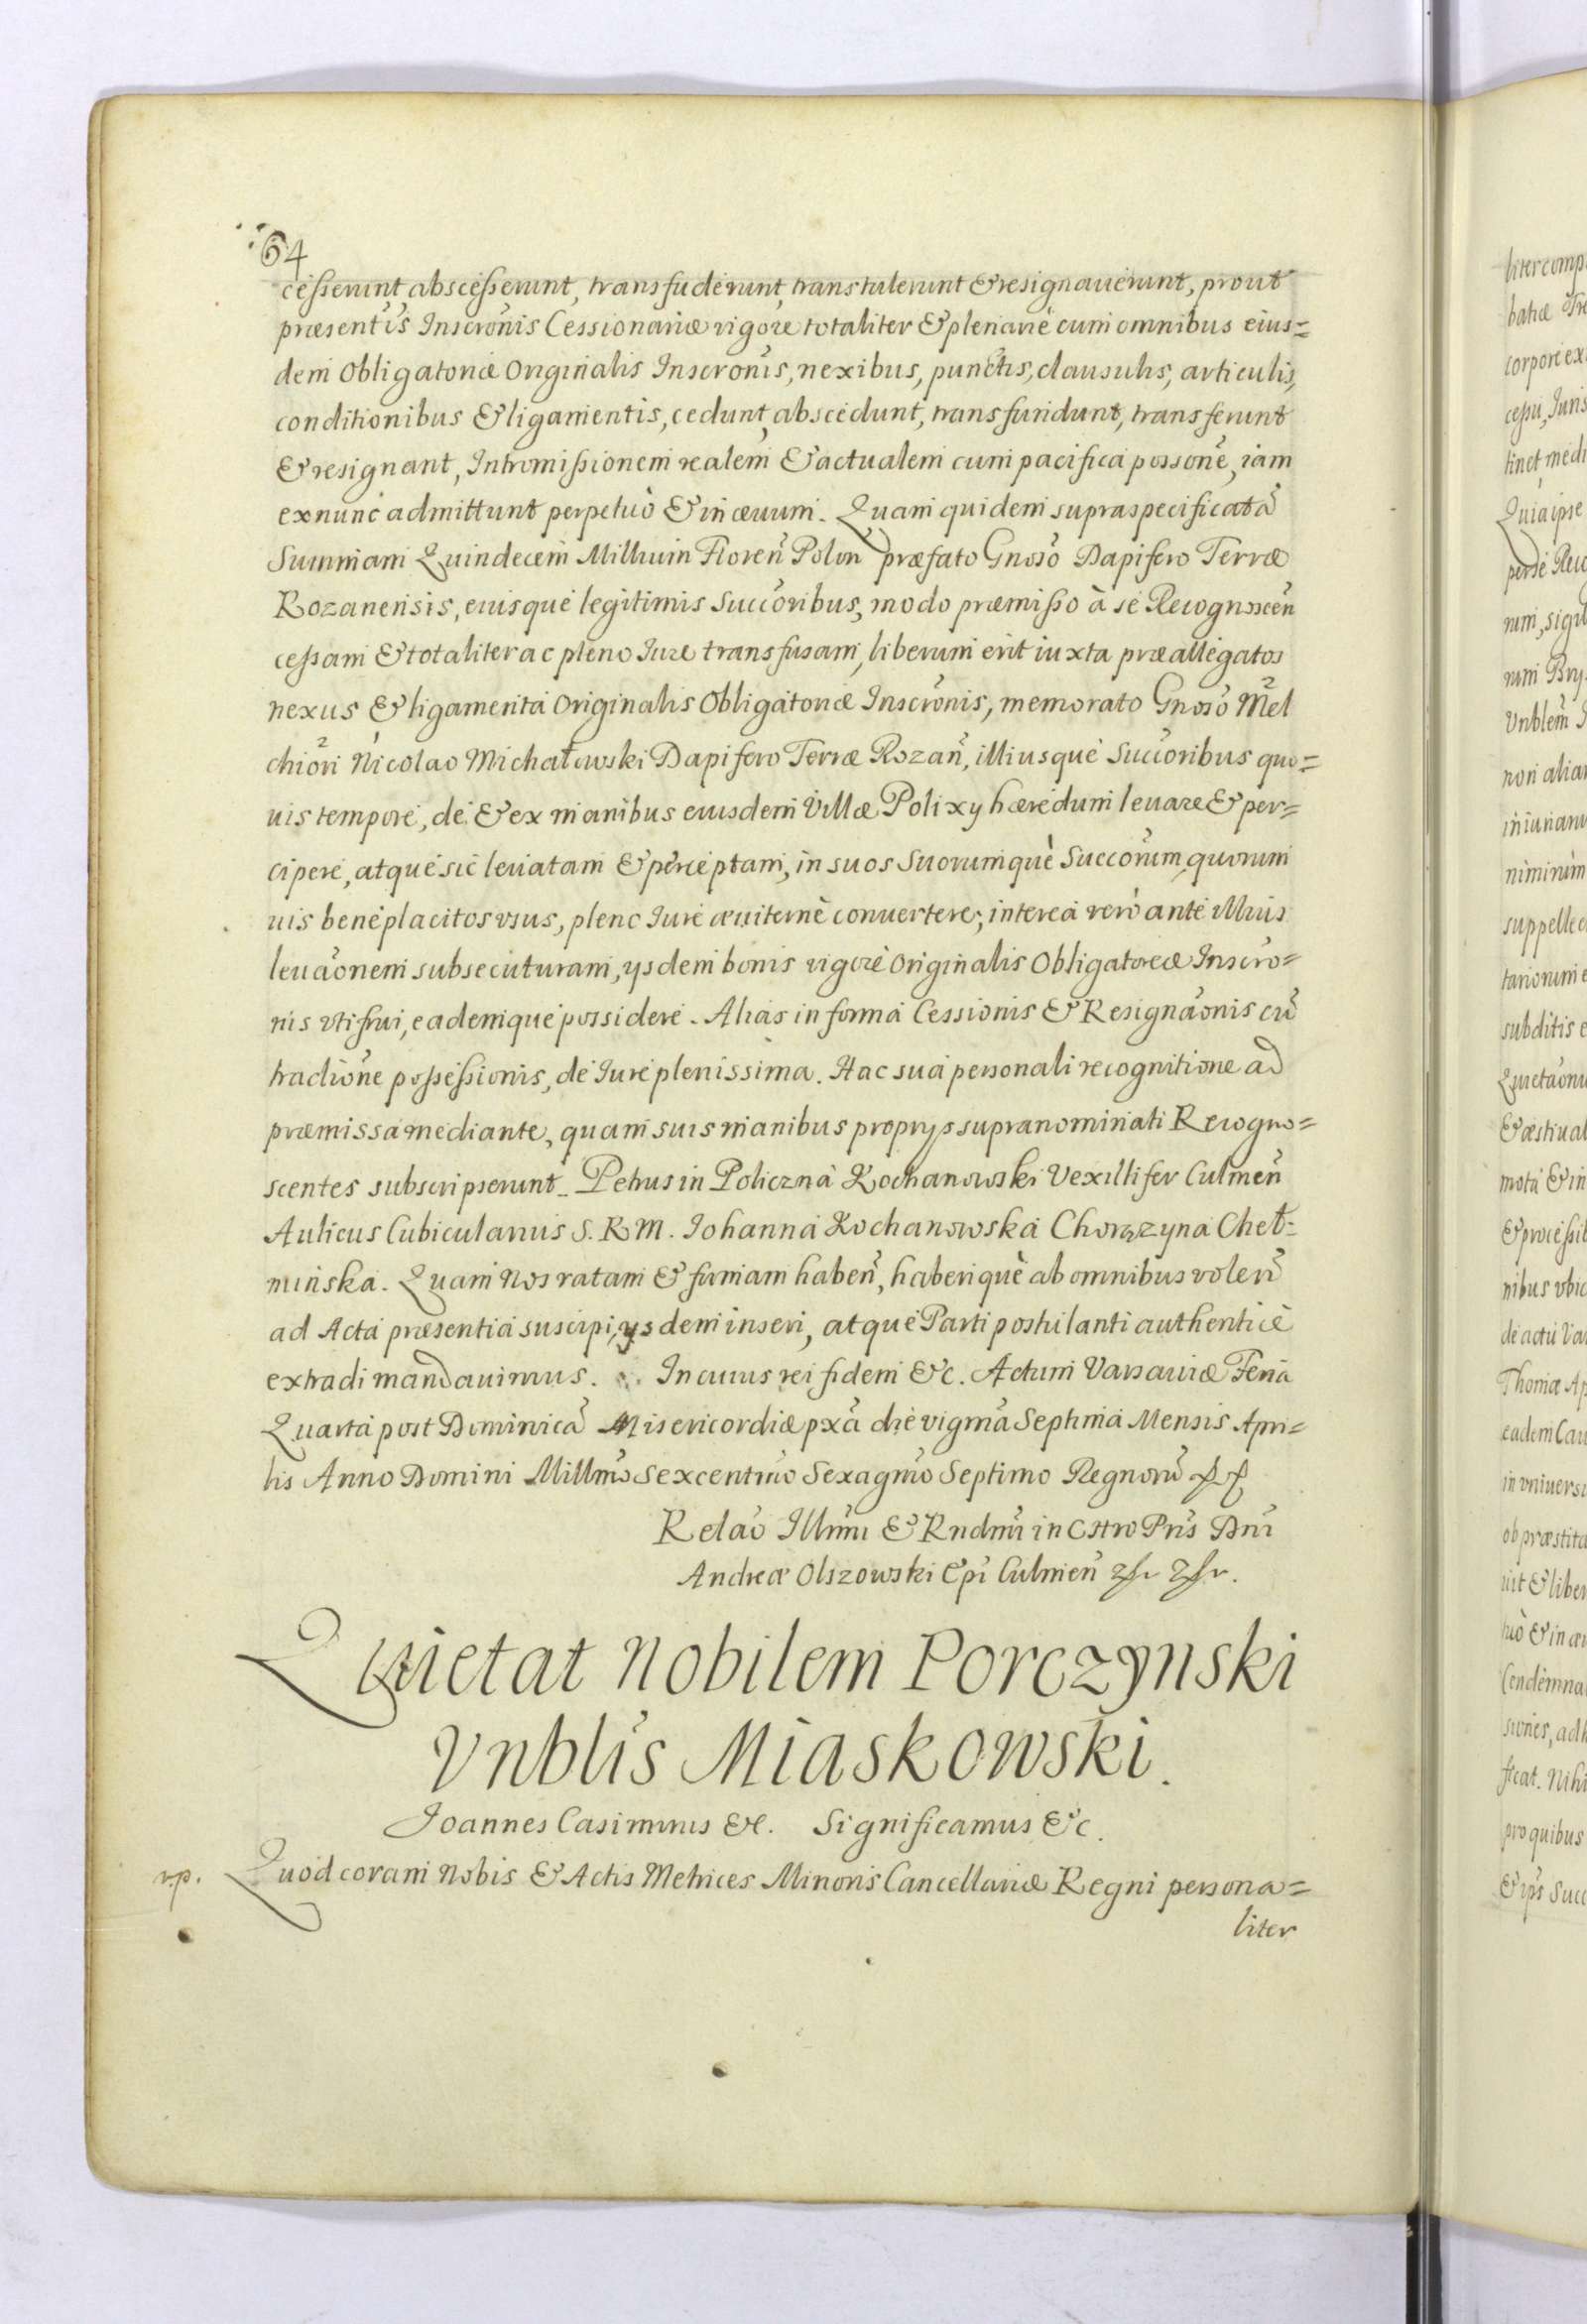 64
cesserunt abscesserunt, transfuderunt, transtulerunt & resignauerunt, prout
præsentis Inscrõnis Cessionariæ vigore totaliter & plenariè cum omnibus eius=
dem Obligatoriæ Originalis Inscrõnis, nexibus, punctis, clausulis, articulis,
conditionibus & ligamentis, cedunt, abscedunt, transfundunt, transferunt
& resignant, Intromissionem realem & actualem cum pacifica possõne, iam
exnunc admittunt perpetuò & in æuum. Quam quidem supraspecificatã
Summam Quindecem Millium Floreñ Polon præfato Gnoso Dapifero Terræ
Rozanensis, eiusque legitimis Succõribus, modo præmisso à se Recognosceñ
cessam & totaliter ac pleno Iure transfusam, liberum erit iuxta præallegatos
nexus & ligamenta Originalis Obligatoriæ Inscrõnis, memorato Gnoso Mel
chiori Nicolao Michałowski Dapifero Terræ Rozañ, illiusque Succõribus quo=
uis tempore, de & ex manibus eiusdem Villæ Polixy hæredum leuare & per=
cipere, atque sic leuatam & perceptam, in suos Suorumquè Succõrum, quorum
uis beneplacitos vsus, pleno Iure æuiternè conuertere; interea verò ante illius
leuãonem subsecuturam, ysdem bonis vigore Originalis Obligatoreæ Inscrõ=
nis vti frui, eademque possidere. Alias in forma Cessionis & Resignãonis cũ
tradiõne possessionis, de Iure plenissima. Hac sua personali recognitione ad
præmissa mediante, quam suis manibus proprys supranominati Recogno=
scentes subscripserunt. Petrus in Policzna Kochanowski Vexillifer Culmeñ
Aulicus Cubicularius S. R M. Iohanna Kochanowska Chorązyna Cheł=
minska. Quam Nos ratam & firmam habeñ, haberiquè ab omnibus voleñ
ad Acta præsentia suscipi, ysdem inseri, atque Parti postulanti authenticè
extradi mandauimus. In cuius rei fidem &c. Actum Varsauiæ Feria
Quarta post Dominicã Misericordiæ pxã die vigmã Septima Mensis Apri=
lis Anno Domini Millmõ Sexcentmõ Sexagmõ Septimo Regnorũ
Relaõ Illmi & Rndmi in Chro Pris Dni
Andreæ Olszowski Epi Culmeñ
Quietat Nobilem Porczynski
Vnblis Miaskowski.
Joannes Casimirus &c. Significamus &c.
r.p. Quod coram Nobis & Actis Metrices Minoris Cancellariæ Regni persona=
liter